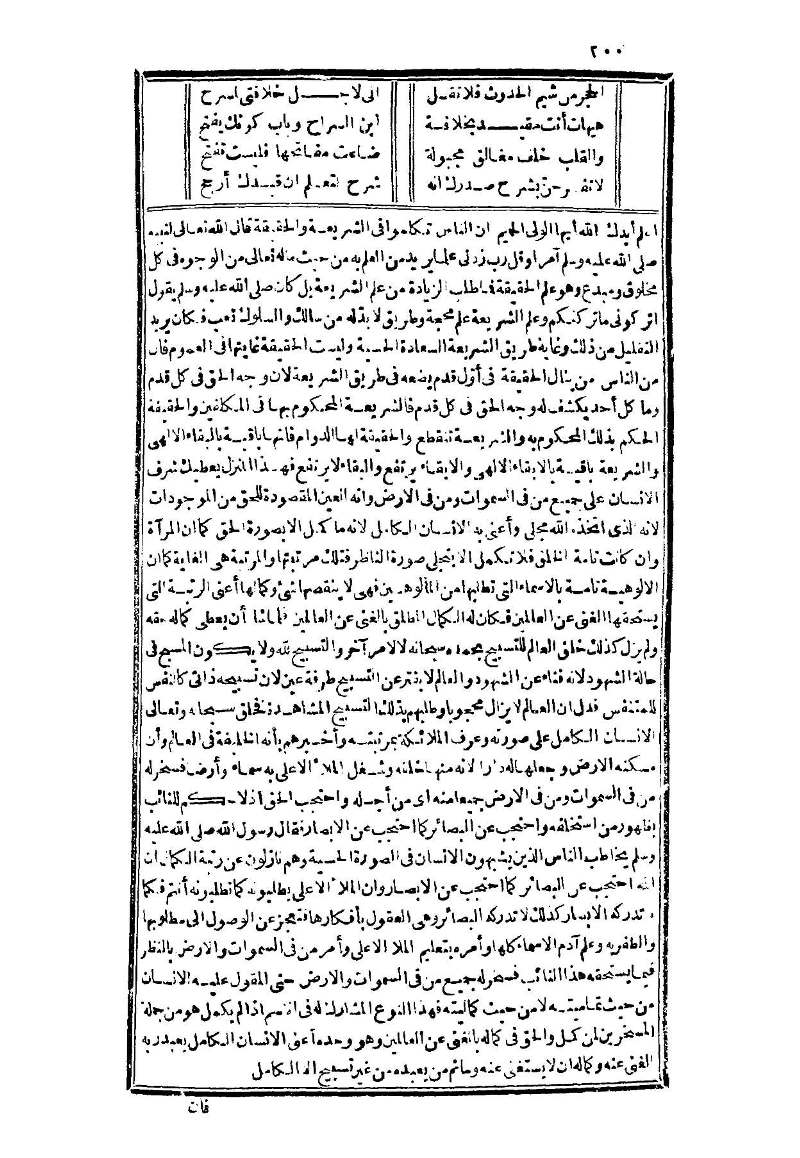 ٢٠٠
العجز من شيم الحدوث فلا تقل الى لاجل خلافتى اسرح
هيهات أنت مقيد بخلافة أين السراح وباب كونك يفتح
والقلب خلف مغالق مجبولة ضاعت مفاتحها فليست تفتح
لا تفرحن بشرح صدرك انه شرح لتعلم ان قيدك أرجح
اعلم أيدك الله أيها الولى الحميم ان الناس تكاموا فى الشريعة والحقيقة قال الله تعالى لنبيه
صلى الله عليه وسلم آمرا وقل رب زدنى علما يريد من العلم به من حيث ماله تعالى من الوجوه فى كل
مخلوق ومبدع وهو علم الحقيقة فما طلب الزيادة من علم الشريعة بل كان صلى الله عليه وسلم يقول
اتركونى ما تركتكم وعلم الشريعة علم محجة وطريق لا بد له من سالك والسلوك تعب فكان يريد
التقليل من ذلك وغاية طريق الشريعة السعادة الحسية وليست الحقيقة غايتها فى العموم فان
من الناس من ينال الحقيقة فى أول قدم يضعه فى طريق الشريعة لان وجه الحق فى كل قدم
وما كل أحد يكشف له وجه الحق فى كل قدم فالشريعة المحكوم بها فى المكلفين والحقيقة
الحكم بذلك المحكوم به والشريعة تنقطع والحقيقة لها الدوام فانها باقية بالبقاء الالهى
والشريعة باقية بالابقاء الالهى والابقاء يرتفع والبقاء لا يرتفع فهذا المنزل يعطيك شرف
الانسان على جميع من فى السموات ومن فى الارض وانه العين المقصودة للحق من الموجودات
لانه الذى اتخذه الله مجلى وأعنى به الانسان الكامل لانه ما كمل الا بصورة الحق كما ان المرآة
وان كانت تامة الخلق فلا تكمل الا بتجلى صورة الناظر فتلك مرتبتها والمرتبة هى الغاية كما ان
الالوهية تامة بالاسماء التى تطلبها من المألوهين فهى لا ينقصها شئ وكمالها أعنى الرتبة التى
يستحقها الغنى عن العالمين فكان له الكمال المطلق بالغنى عن العالمين فلما شاء أن يعطى كماله حقه
ولم يزل كذلك خلق العالم للتسبيح بحمده سبحانه لا لامر آخر والتسبيح لله ولا يكون المسبح فى
حالة الشهود لانه فناء عن الشهود والعالم لا يفتر عن التسبيح طرفة عين لان تسبيحه ذاتى كالنفس
للمتنفس فدل ان العالم لا يزال محجوبا وطلبهم بذلك التسبيح المشاهدة فخلق سبحانه وتعالى
الانسان الكامل على صورته وعرف الملائكة بمرتبته وأخبرهم بأنه الخليفة فى العالم وأن
مسكنه الارض وجعلها له دارا لانه منها خلقه وشغل الملأ الاعلى به سماء وأرضا فسخر له
من فى السموات ومن فى الارض جميعا منه اى من أجله واحتجب الحق اذ لا حكم للنائب
بظهور من استخلفه واحتجب عن البصائر كما احتجب عن الابصار فقال رسول الله صلى الله عليه
وسلم يخاطب الناس الذين يشبهون الانسان فى الصورة الحسية وهم نازلون عن رتبة الكمال ان
الله احتجب عن البصائر كما احتجب عن الابصار وان الملأ الاعلى يطلبونه كما تطلبونه أنتم فكما
لا تدركه الابصار كذلك لا تدركه البصائر وهى العقول بأفكارها فتعجز عن الوصول الى مطلوبها
والظفر به وعلم آدم الاسماء كلها وأمره بتعليم الملا الاعلى وأمر من فى السموات والارض بالنظر
فيما يستحقه هذا النائب فسخر له جميع من فى السموات والارض حتى المقول عليه الانسان
من حيث تماميته لا من حيث كماليته فهذا النوع المشارك له فى الاسم اذا لم يكمل هو من جملة
المسخرين لمن كمل والحق فى كماله بالغنى عن العالمين وهو وحده أعنى الانسان الكامل يعبد ربه
الغنى عنه وكماله ان لا يستغنى عنه وما ثم من يعبده من غير تسبيح الا الكامل
فان